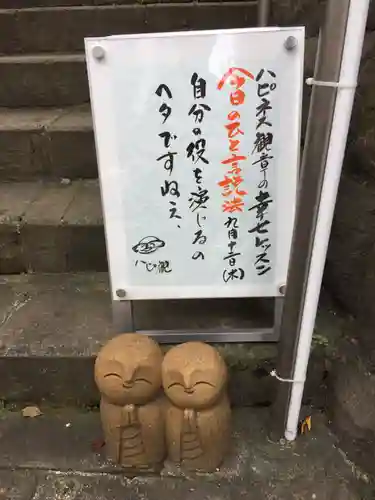 ハピネス観音の幸せレッスン
今日のひと言説法九月十二日(木)
自分の役を演じるの
ヘタですねえ。
ハピ観